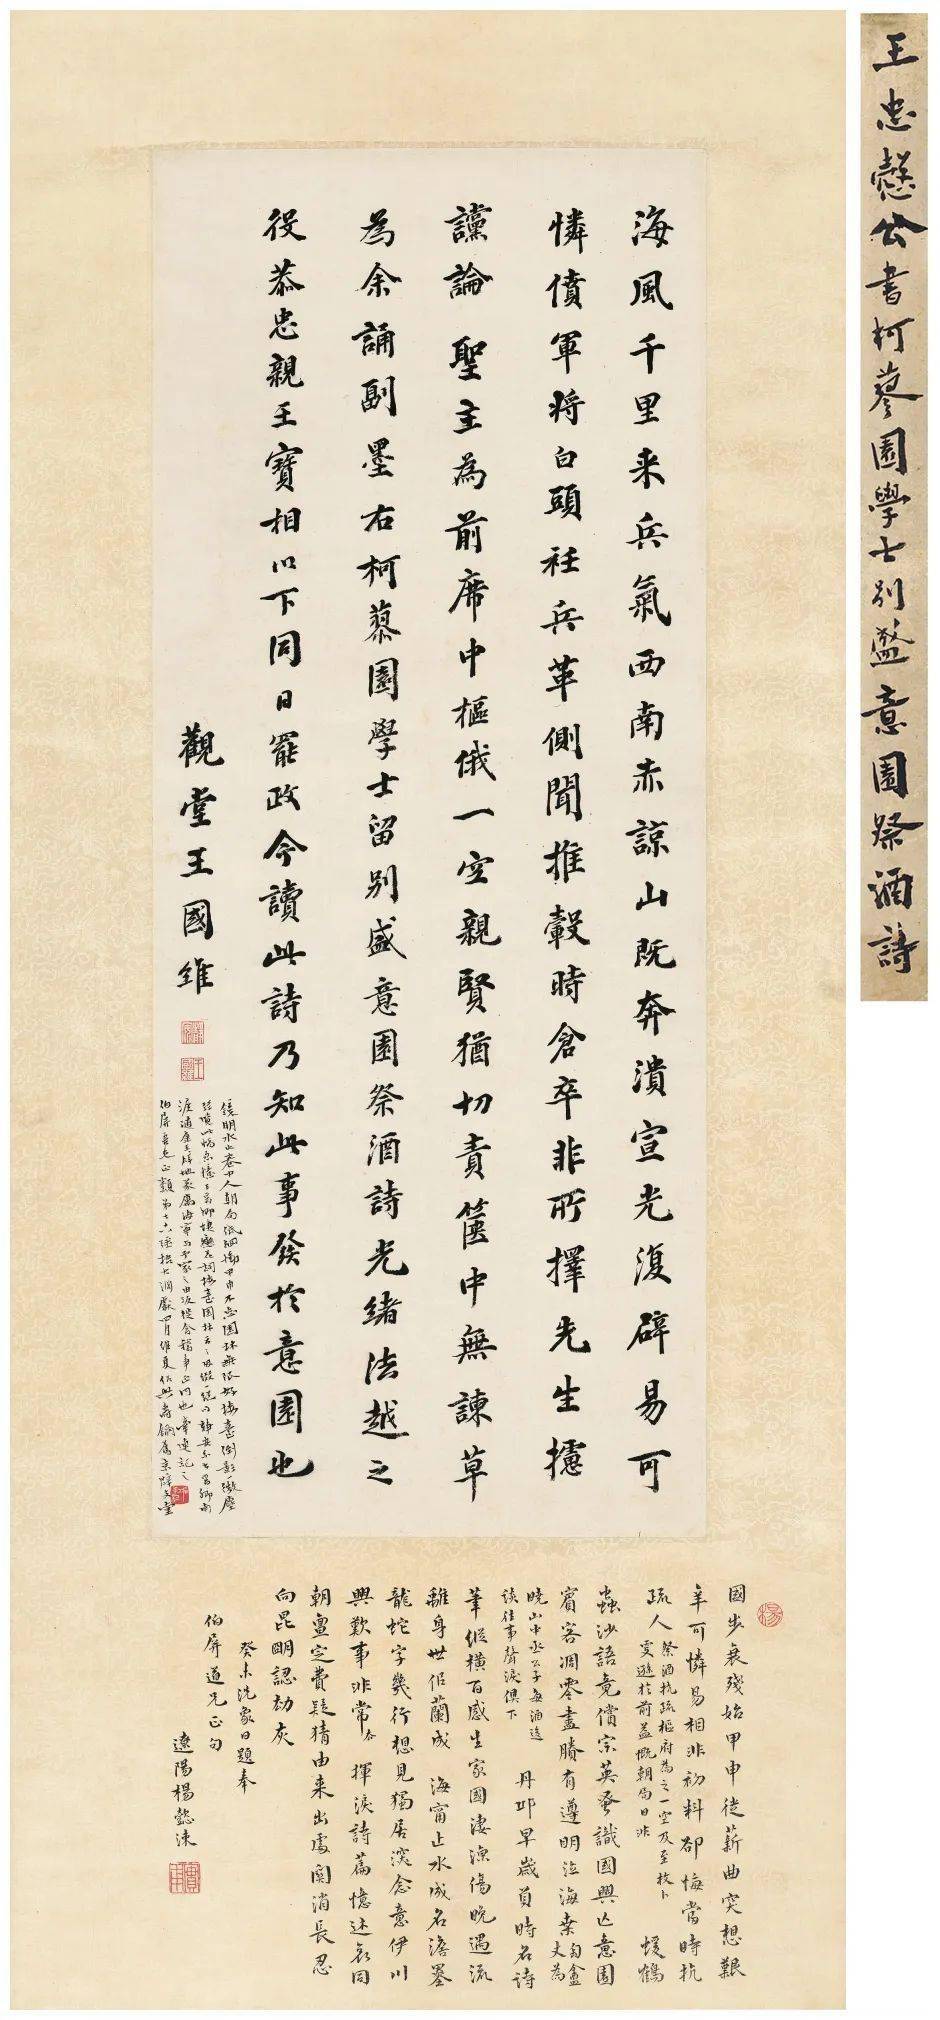 王忠慤公書柯蓼園學士別盛意園祭酒詩
海風千里来兵氣西南赤諒山既奔潰宣光復辟易可
憐僨軍将白頭衽兵革側聞推轂時倉卒非所擇先生攄
讜論 聖主為前席中樞俄一空親賢猶切責篋中無諫草
為余誦副墨右柯蓼園學士留別盛意園祭酒詩光緒法越之
役恭忠親王寶相以下同日罷政今讀此詩乃知此事發於意園也
觀堂王國維
國步衰殘始甲申徙薪曲突想艱
辛可憐易相非初料卻悔當時抗
疏人
祭酒抗疏樞府為之一空及至枚卜
猨鶴
蟲沙語竟儻宗英蚤識國興亡意園
賓客凋零盡賸有遵明泣海桑
談往事聲淚俱下
丹邱早歲負時名詩
筆縱橫百感生家國淒涼傷晚遇流
離身世佀蘭成 海甯止水成名澹墨
龍蛇字幾行想見獨居深念意伊川
興歎事非常 揮淚詩篇憶述哀同
朝亶定費疑猜由来出處關消長忍
向昆明認劫灰
癸未洗象日題奉
伯屏道兄正句
遼陽楊懿涑